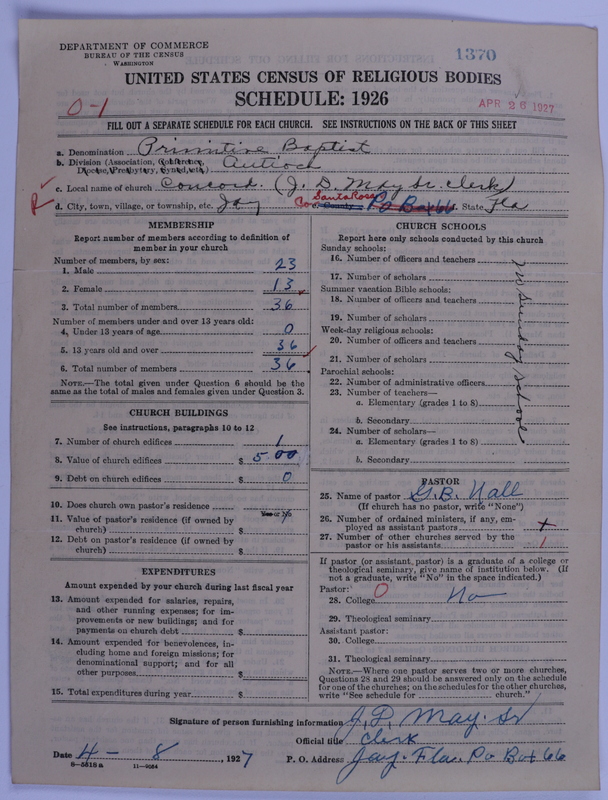 DEPARTMENT OF COMMERCE
BUREAU OF THE CENSUS
WASHINGTON
1370
UNITED STATES CENSUS OF RELIGIOUS BODIES
SCHEDULE: 1926
0-1
APR 26 1927
FILL OUT A SEPARATE SCHEDULE FOR EACH CHURCH. SEE INSTRUCTIONS ON THE BACK OF THIS SHEET
a. Denomination Primitive Baptist
b. Division (Association, Conference, Diocese, Presbytery, Synod, etc.) Antioch
c. Local name of church Concord. (J. D. May Sr. Clerk)
d. City, town, village, or township, etc. Jay Co. Santa Rosa County PO Box 66 State Fla
MEMBERSHIP
Report number of members according to definition of
member in your church
Number of members, by sex:
1. Male 23
2. Female 13
3. Total number of members 36
Number of members under and over 13 years old:
4. Under 13 years of age 0
5. 13 years old and over 36
6. Total number of members 36
NOTE.—The total given under Question 6 should be the
same as the total of males and females given under Question 3.
CHURCH BUILDINGS
See instructions, paragraphs 10 to 12
7. Number of church edifices 1
8. Value of church edifices $ 5.00
9. Debt on church edifices $ 0
10. Does church own pastor's residence
Yes or No
11. Value of pastor's residence (if owned by
church) $
12. Debt on pastor's residence (if owned by
church) $
EXPENDITURES
Amount expended by your church during last fiscal year
13. Amount expended for salaries, repairs,
and other running expenses; for im-
provements or new buildings; and for
payments on church debt $
14. Amount expended for benevolences, in-
cluding home and foreign missions; for
denominational support; and for all
other purposes $
15. Total expenditures during year $
CHURCH SCHOOLS
Report here only schools conducted by this church
Sunday schools:
16. Number of officers and teachers
17. Number of scholars
Summer vacation Bible schools:
18. Number of officers and teachers
19. Number of scholars
Week-day religious schools:
20. Number of officers and teachers
21. Number of scholars
Parochial schools:
22. Number of administrative officers
23. Number of teachers—
a. Elementary (grades 1 to 8)
b. Secondary
24. Number of scholars—
a. Elementary (grades 1 to 8)
b. Secondary
no Sunday School
PASTOR
25. Name of pastor G. B. Hall
(If church has no pastor, write "None")
26. Number of ordained ministers, if any, em-
ployed as assistant pastors
27. Number of other churches served by the
pastor or his assistants 1
If pastor (or assistant, pastor) is a graduate of a college or
theological seminary, give name of institution below. (If
not a graduate, write "No" in the space indicated.)
Pastor:
28. College 0 No
29. Theological seminary
Assistant pastor:
30. College
31. Theological seminary
NOTE.—Where one pastor serves two or more churches,
Questions 28 and 29 should be answered only on the schedule
for one of the churches; on the schedules for the other churches,
write "See schedule for church."
Signature of person furnishing information J. D. May. Sr
Official title Clerk
Date 4 - 8, 1927
P. O. Address Jay. Fla. Po Box 66
8-5618 a 11-9084